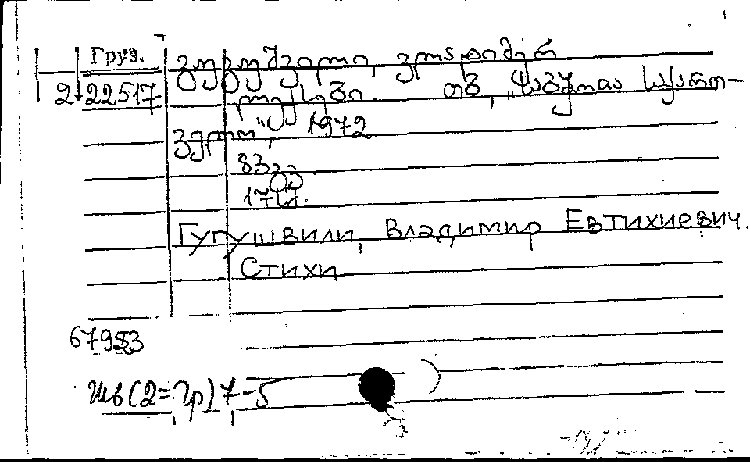 Груз.
2 22517
გუგუშვილი, ვლადიმერ
ლექსები. თბ., „საბჭოთა საქართ-
ველო“, 1972
83 გვ
17 სმ.
Гугушвили, Владимир Евтихиевич.
Стихи
67983
Шв(2=Гр)7-5